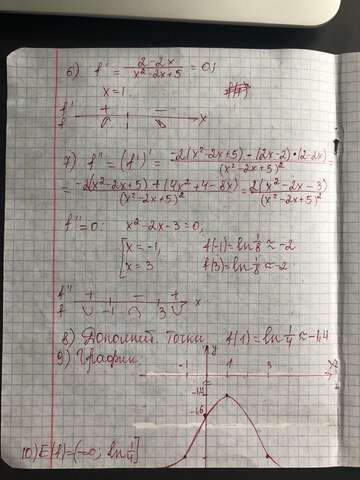 6) f' = (2 - 2x)/(x² - 2x + 5) = 0;
x = 1.
f' + −
f 1 x
7) f'' = (f')' = (-2(x² - 2x + 5) - (2x - 2)·(2 - 2x))/(x² - 2x + 5)² =
= (-2(x² - 2x + 5) + (4x² + 4 - 8x))/(x² - 2x + 5)² = 2(x² - 2x - 3)/(x² - 2x + 5)²
f'' = 0: x² - 2x - 3 = 0,
[ x = -1, f(-1) = ln 1/8 ≈ -2
x = 3 f(3) = ln 1/8 ≈ -2
f'' + − +
f -1 3 x
8) Дополнит. точки f(1) = ln 1/4 ≈ -1,4
9) График: y
-1 1 3 x
-1,4
-1,6
10) E(f) = (-∞; ln 1/4]